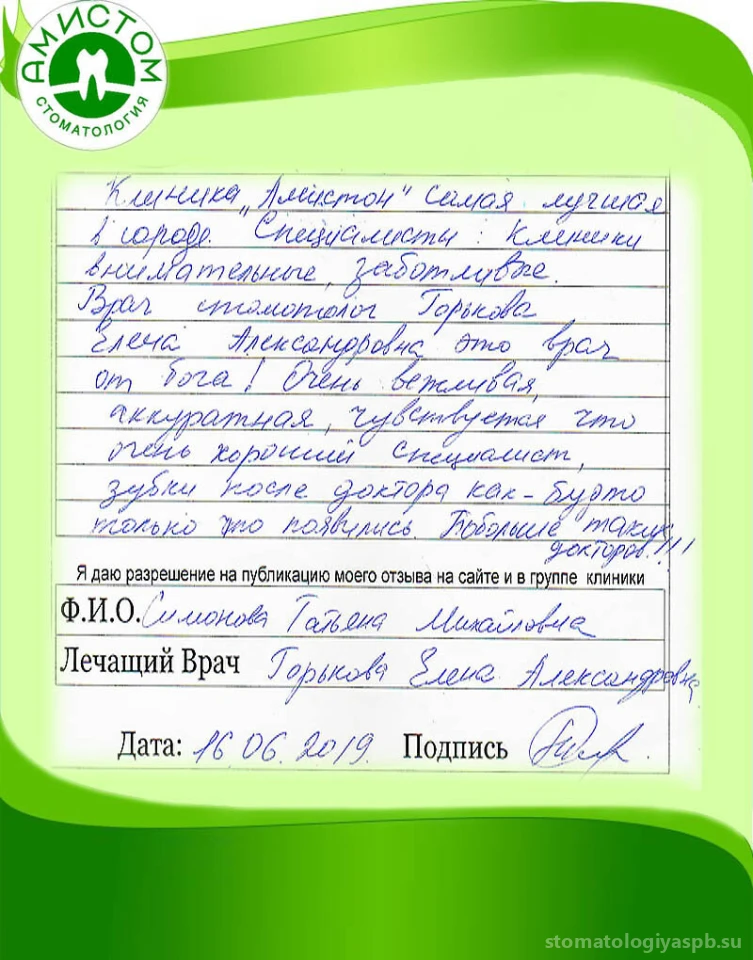 АМИСТОМ
СТОМАТОЛОГИЯ
Клиника „Амистон" самая лучшая
в городе. Специалисты : клиники
внимательные, заботливые.
Врач стоматолог Горькова
Елена Александровна это врач
от бога! Очень вежливая,
аккуратная, чувствуется что
очень хороший специалист,
зубки после доктора как-будто
только что появились. Побольше таких
докторов!!!
Я даю разрешение на публикацию моего отзыва на сайте и в группе клиники
Ф.И.О. Симонова Татьяна Михайловна
Лечащий Врач Горькова Елена Александровна
Дата: 16.06.2019. Подпись
stomatologiyaspb.su